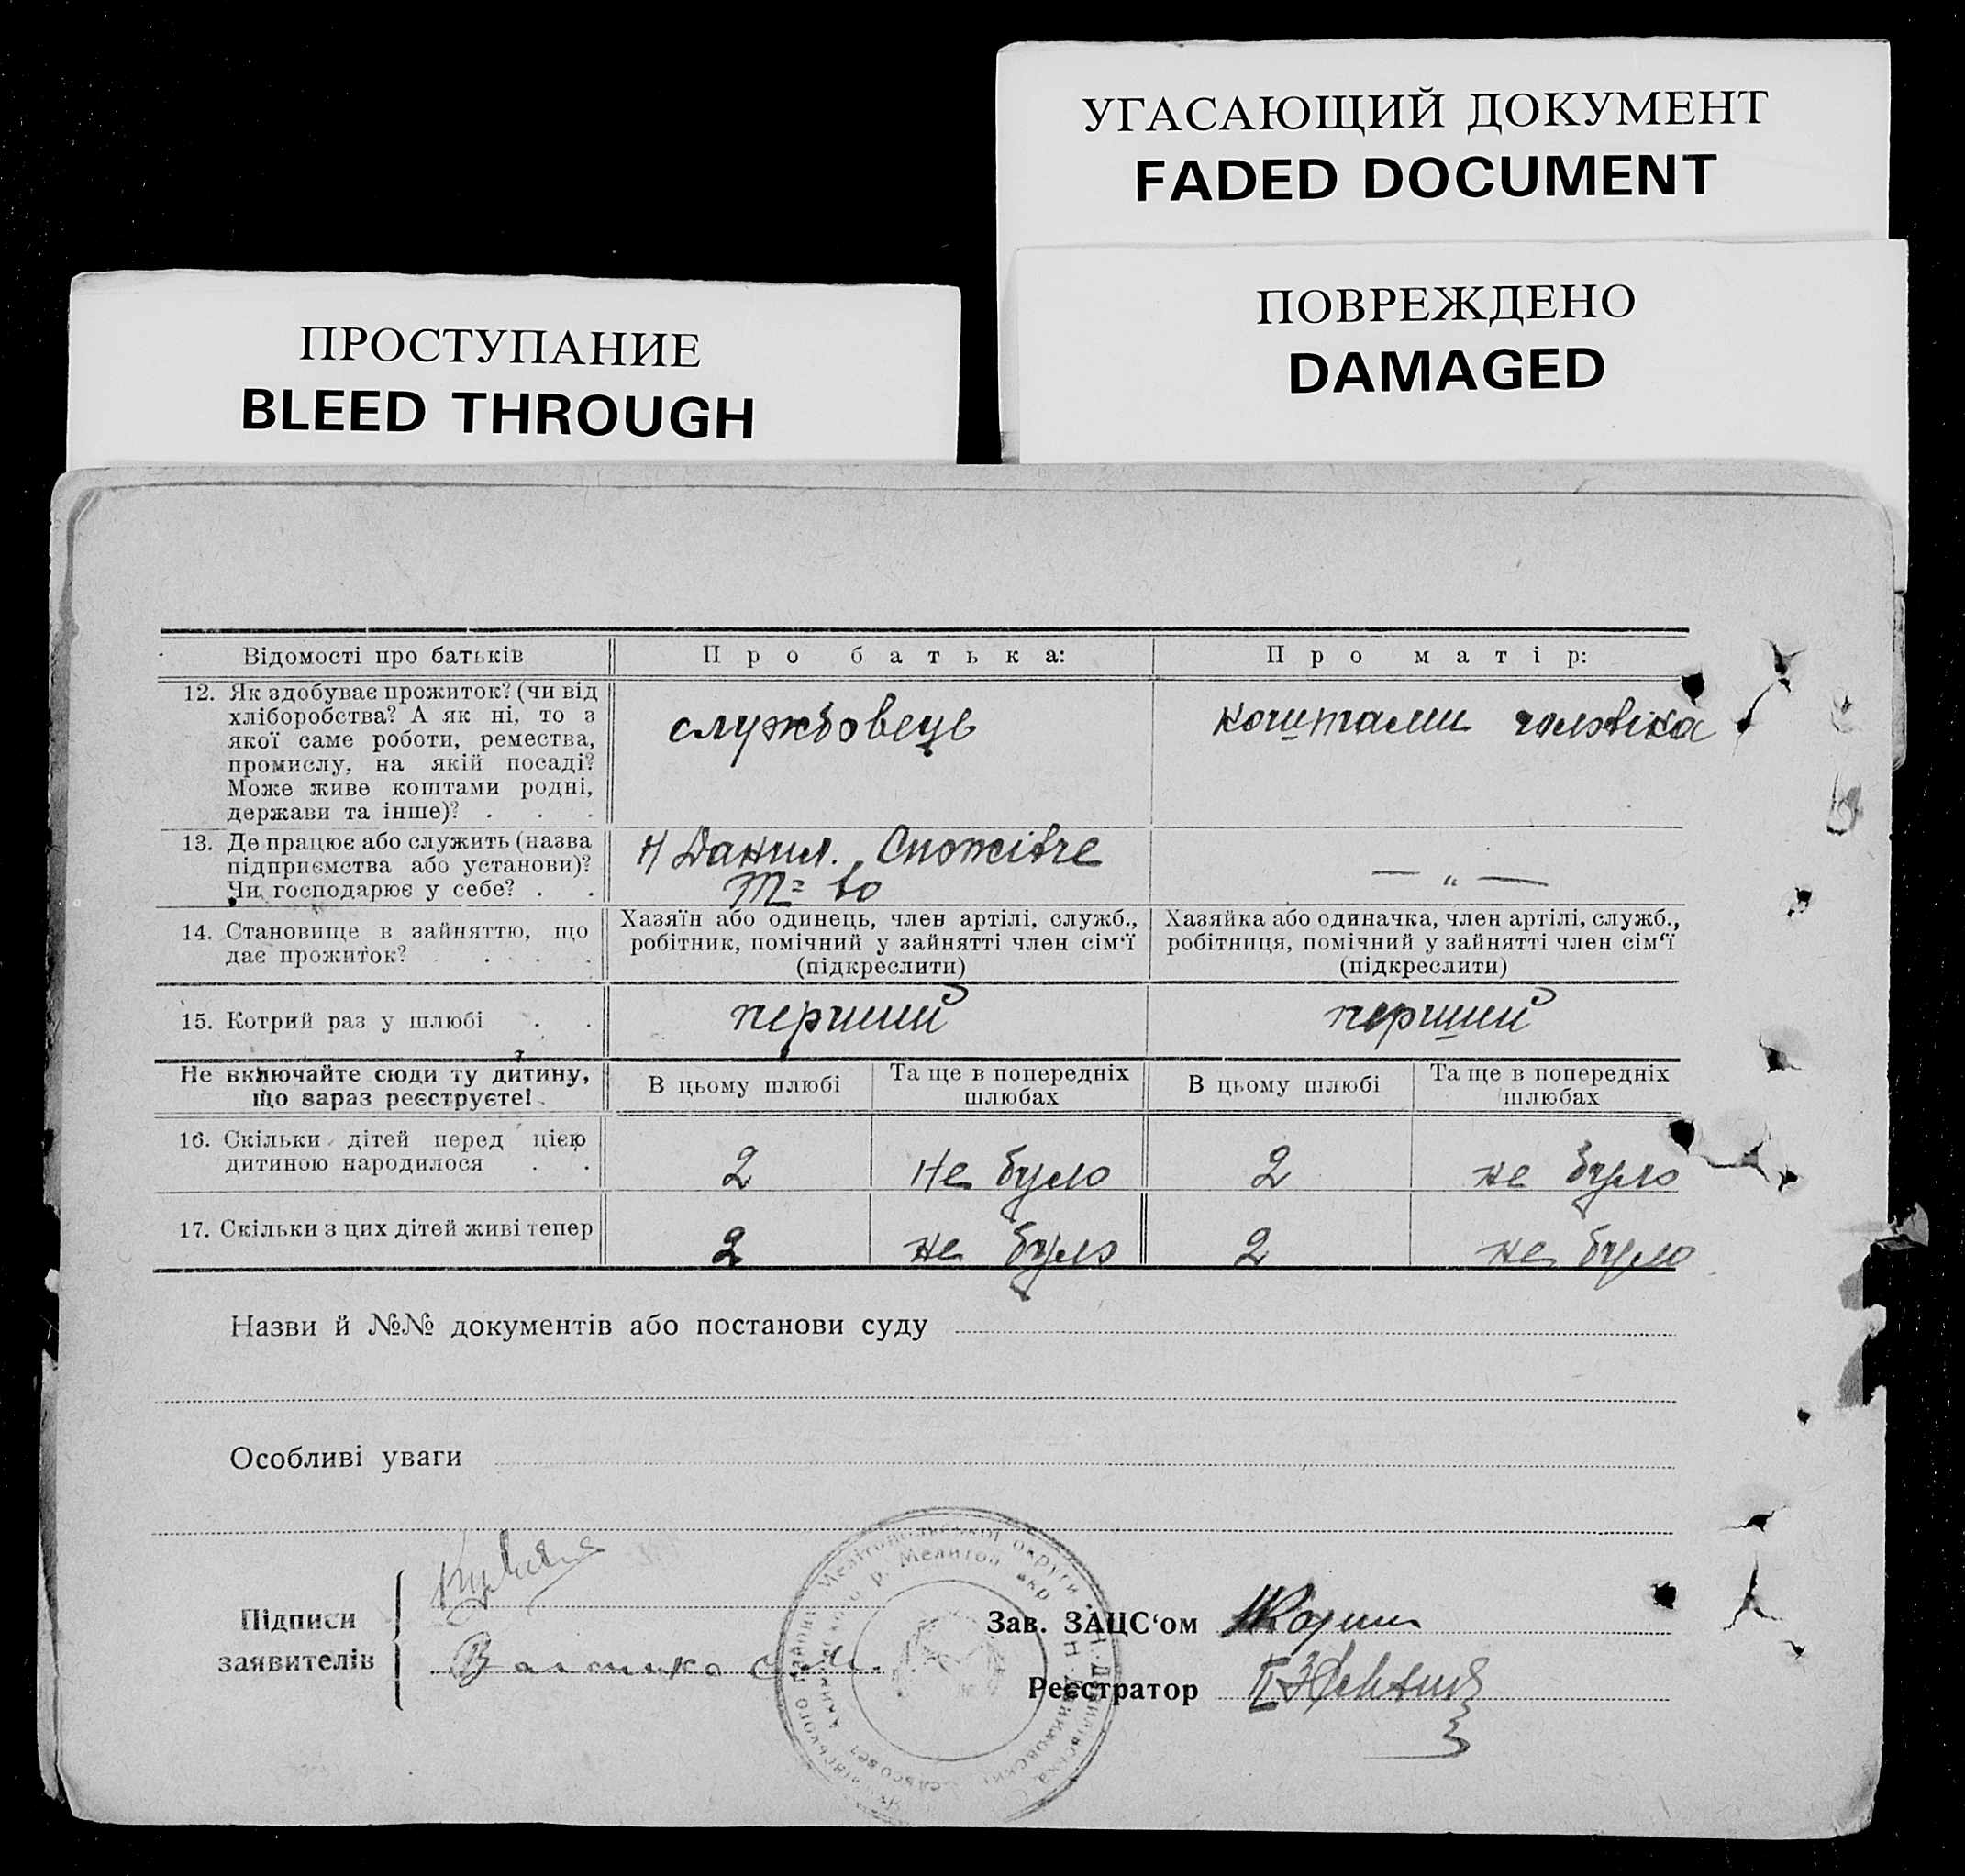 УГАСАЮЩИЙ ДОКУМЕНТ
FADED DOCUMENT
ПОВРЕЖДЕНО
DAMAGED
ПРОСТУПАНИЕ
BLEED THROUGH
Відомості про батьків
Про батька:
Про матір:
12. Як здобуває прожиток? (чи від
хліборобства? А як ні, то з
якої саме роботи, ремества,
промислу, на якій посаді?
Може живе коштами родні,
держави та інше)? . . .
службовець
коштами чоловіка
13. Де працює або служить (назва
підприємства або установи)?
Чи господарює у себе? . .
Н Данил. Споживче
т-во
— „ —
14. Становище в зайняттю, що
дає прожиток? . . .
Хазяїн або одинець, член артілі, служб.,
робітник, помічний у зайнятті член сім‘ї
(підкреслити)
Хазяйка або одиначка, член артілі, служб.,
робітниця, помічний у зайнятті член сім‘ї
(підкреслити)
15. Котрий раз у шлюбі . .
перший
перший
Не включайте сюди ту дитину,
що зараз реєструєте!
В цьому шлюбі
Та ще в попередніх
шлюбах
В цьому шлюбі
Та ще в попередніх
шлюбах
16. Скільки дітей перед цією
дитиною народилося . .
2
не було
2
не було
17. Скільки з цих дітей живі тепер
2
не було
2
не було
Назви й №№ документів або постанови суду
Особливі уваги
Підписи
заявителів
Зав. ЗАЦС‘ом
Реєстратор
Мелітопольської округи
р. Мелитоп окр
сельсовет